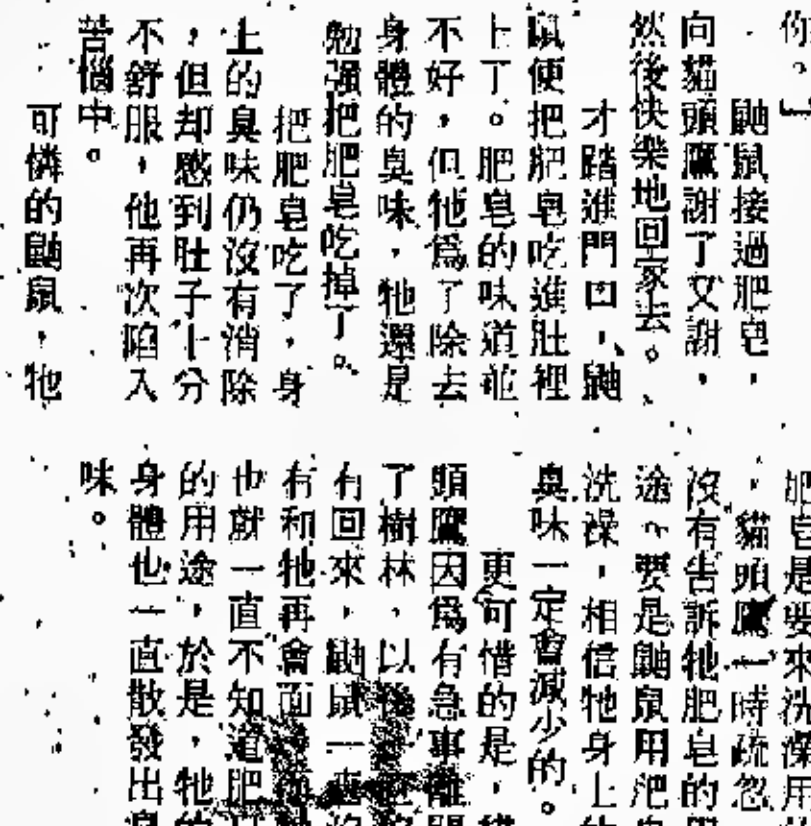 你。」
鼬鼠接過肥皂,
向貓頭鷹謝了又謝,
然後快樂地回家去。
才踏進門口,鼬
鼠便把肥皂吃進肚裡
上了。肥皂的味道並
不好,但牠爲了除去
身體的臭味,牠還是
勉强把肥皂吃掉了。
把肥皂吃了,身
上的臭味仍沒有消除
,但却感到肚子十分
不舒服,他再次陷入
苦惱中。
可憐的鼬鼠,牠
肥皂是要來洗澡用
,貓頭鷹一時疏忽
沒有告訴牠肥皂的用
途。要是鼬鼠用肥皂
洗澡,相信牠身上
臭味一定會減少的。
更可惜的是,貓
頭鷹因爲有急事離開
了樹林,以後
有回來,鼬鼠一直沒
有和牠再會面
也就一直不知道肥
的用途,於是,牠的
身體也一直散發出臭
味。